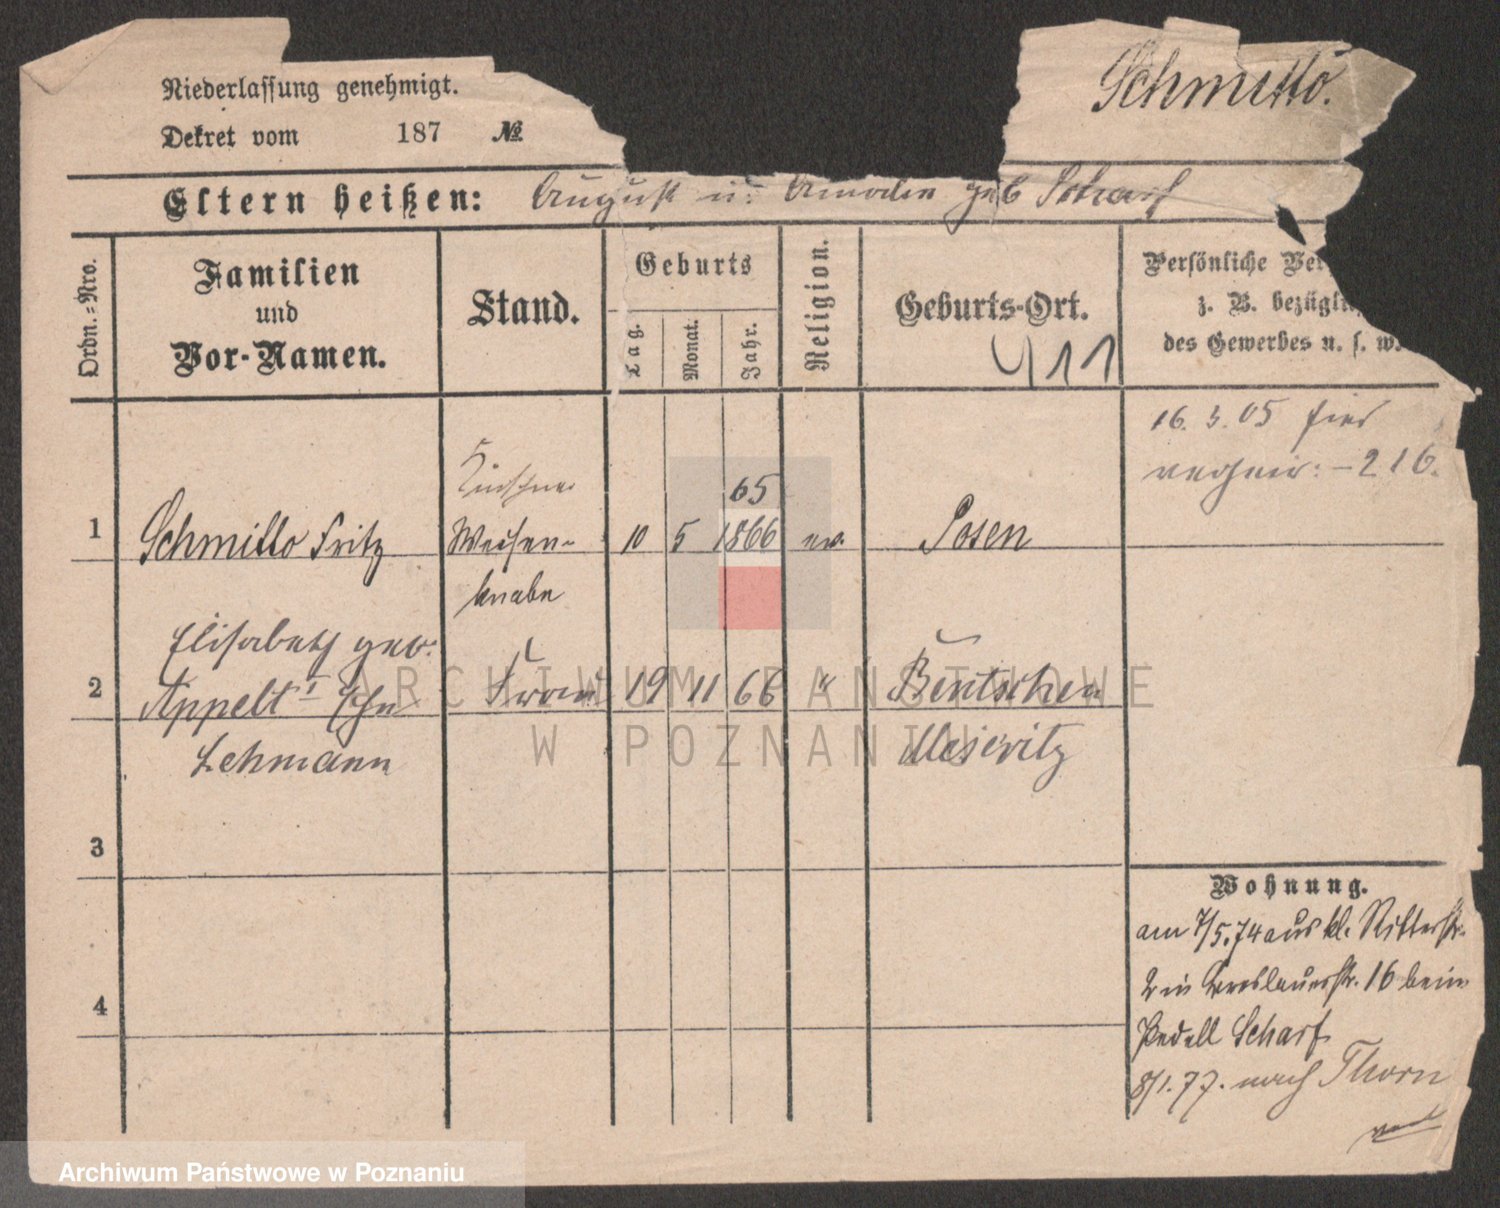 Niederlassung genehmigt.
Dekret vom 187 №
Schmitto.
Eltern heißen: August u. Amalie geb Scharf
Ordn.=Nro.
Familien
und
Vor-Namen.
Stand.
Geburts
Tag.
Monat.
Jahr.
Religion.
Geburts-Ort.
411
Persönliche Ver
z. B. bezügli
des Gewerbes u. s. w.
16. 3. 05 hier
- 216.
65
1 Schmitto Fritz Waisen- 10 5 1866 ev. Posen
knabe
Elisabeth geb.
2 Appelt Frau 19 11 66 " Bentschen
Lehmann Meseritz
3
4
Wohnung.
am 7/5.74 aus kl. Ritterstr.
2 in Breslauerstr. 16 beim
Pedell Scharf
8/1.77. nach Thorn
ARCHIWUM PAŃSTWOWE
W POZNANIU
Archiwum Państwowe w Poznaniu